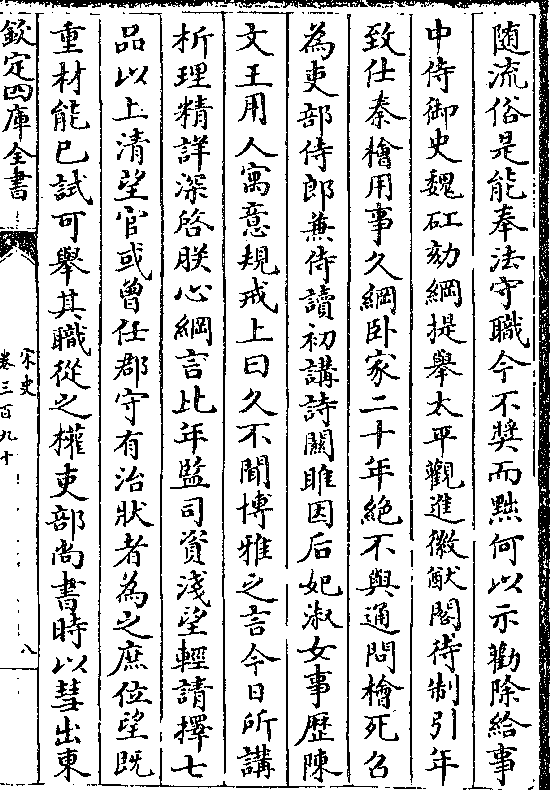 随流俗是能奉法守職今不奬而黜何以示勸除給事
中侍御史魏矼劾綱提舉太平觀進徽猷閣待制引年
致仕秦檜用事久綱卧家二十年絶不與通問檜死召
為吏部侍郎兼侍讀初講詩關雎因后妃淑女事歴陳
文王用人寓意規戒上曰久不聞博雅之言今日所講
析理精詳深啓朕心綱言比年監司資淺望輕請擇七
品以上清望官或曾任郡守有治狀者為之庶位望既
重材能已試可舉其職從之權吏部尚書時以彗出東
欽定四庫全書
宋史
卷三百九十
八